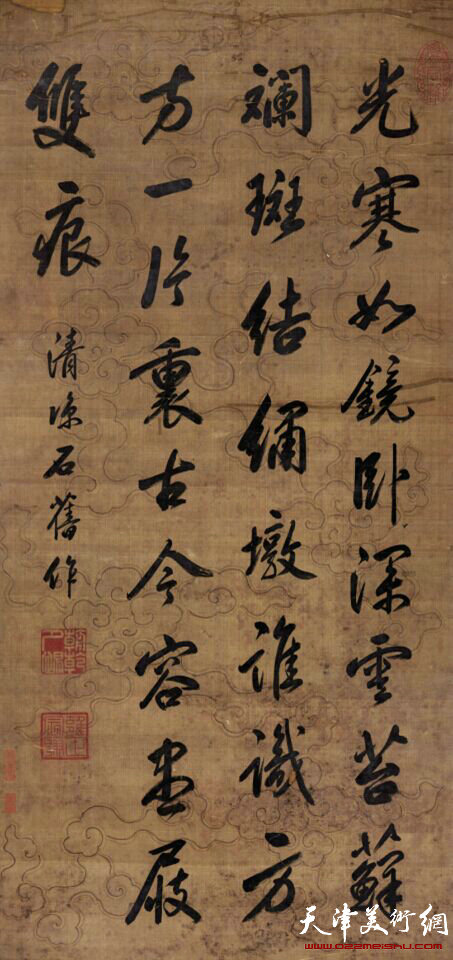 光寒如鏡卧深雲苔蘚
斕斑結繡墩誰識方
方一片裏古今容盡屐
雙痕
清凉石舊作
天津美術網
www.022meishu.com